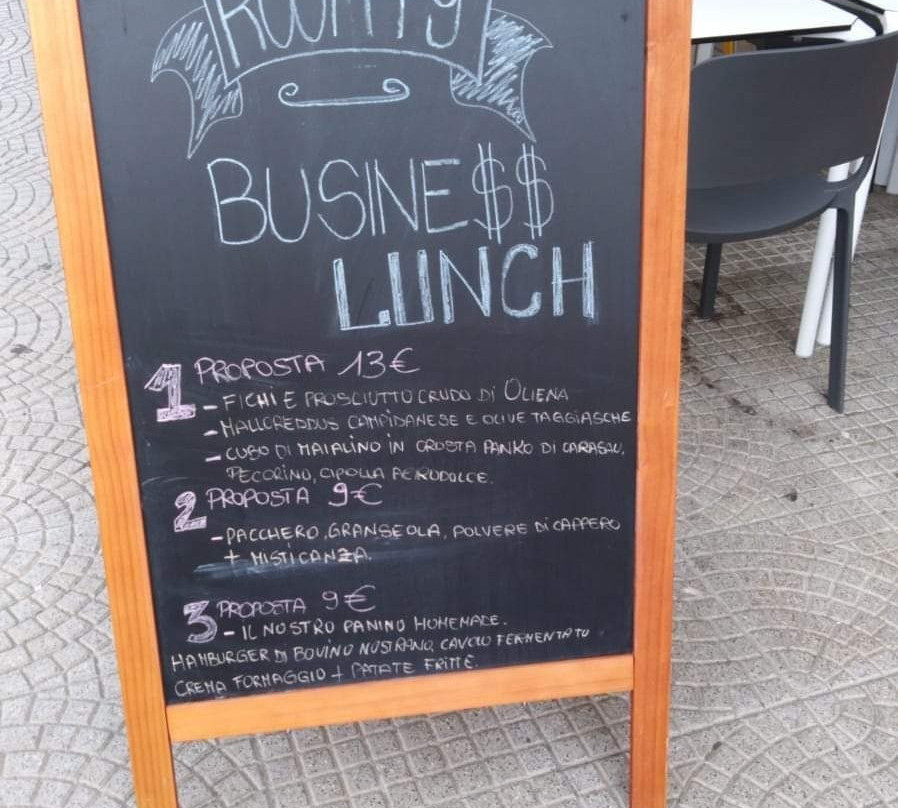 BUSINE$$
LUNCH
1 PROPOSTA 13€
- FICHI E PROSCIUTTO CRUDO Di OLIENA
- MALLOREDDUS CAMPIDANESE E OLIVE TAGGIASCHE
- CUBO DI MAIALINO IN CROSTA PANKO DI CARASAU,
PECORINO, CIPOLLA AGRODOLCE.
2 PROPOSTA 9€
- PACCHERO, GRANSEOLA, POLVERE Di CAPPERO
+ MISTICANZA.
3 PROPOSTA 9€
- IL NOSTRO PANINO HOMEMADE.
HAMBURGER DI BOVINO NOSTRANO, CAVOLO FERMENTATO
CREMA FORMAGGIO + PATATE FRITTE.